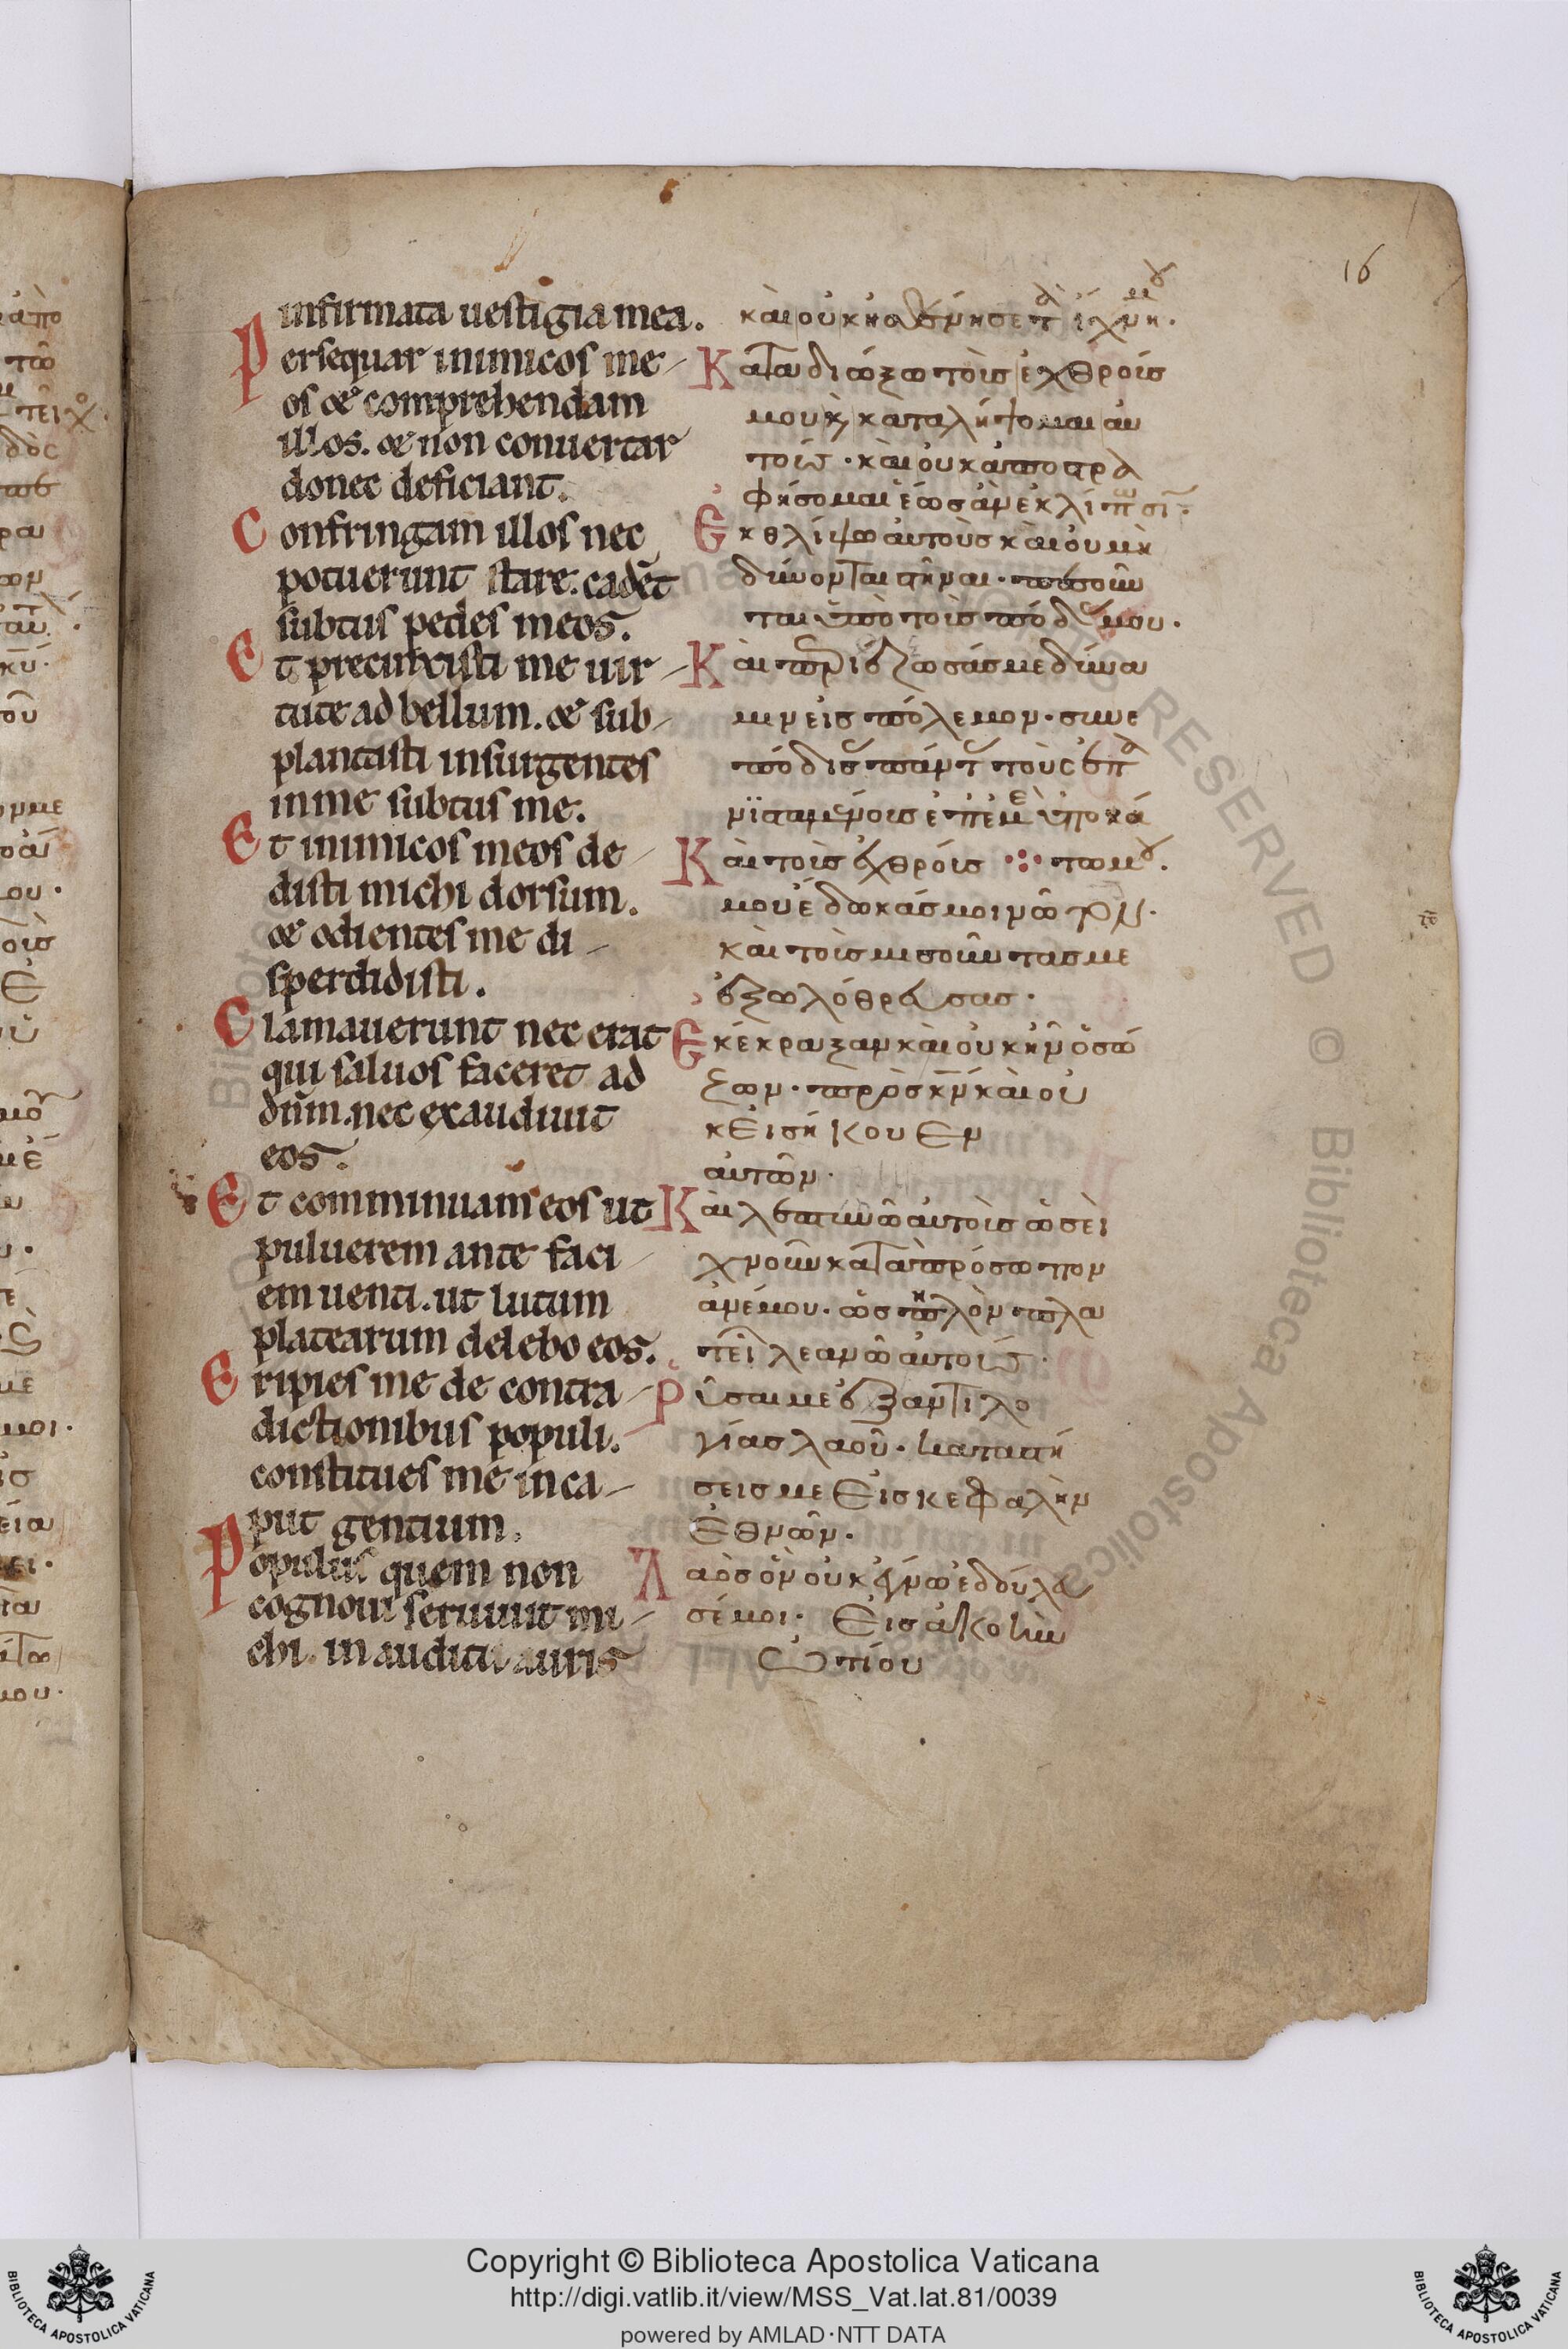 16
infirmata uestigia mea.
Persequar inimicos me
os & comprehendam
illos. & non conuertar
donec deficiant.
Confringam illos nec
potuerunt stare. cadēt
subtus pedes meos.
Et precinxisti me uir
tute ad bellum. & sub
plantasti insurgentes
in me subtus me.
Et inimicos meos de
disti michi dorsum.
& odientes me di
sperdidisti.
Clamauerunt nec erat
qui saluos faceret ad
dn̄m. nec exaudiuit
eos.
Et comminuam eos ut
puluerem ante faci
em uenti. ut lutum
platearum delebo eos.
Eripies me de contra
dictionibus populi.
constitues me in ca
put gentium.
Populus quem non
cognoui seruiuit mi
chi. in auditu auris
καὶ οὐκ
Καταδιώξω τοὺσ ἐχθροίσ
μου κ καταλήψομαι αυ
τοισ · καὶ ουκ ἀποστρα
φήσομαι ἕωσ ἀν εκλίπωσι ·
Εκθλίψω ἀυτοὺσ καὶ ου μὴ
δύνονται στῆναι · πεσοῦν
ται ὑπὸ τοὶσ πόδασ μου ·
Καὶ περιέζωσάσ με δύνα
μιν εἰσ πόλεμον · συνε
πόδισ πάντ τοὺς επα
νϊσταμένοισ ἐπ ἐμὲ ὑποκά
Καὶ τοὶσ ἐχθρόισ ⁘ τωμου.
μου ἔδωκάσ μοι νῶτον ·
καὶ τοὶσ μισοῦντασ με
ἐξωλόθρευσασ ·
Εκέκραξαν καὶ οὐκ ῆν ὁ σώ
ζων · πρὸσ κ̅ν̅ καὶ οὐ
κ εισήκουεν
αυτῶν ·
Καὶ λεπτυνῶ αυτοὶσ ὡσεὶ
χνοῦν κατα πρόσωπον
ἀνέμου · ὡσ πηλὸν πλα
τεῖ λεανῶ ἀυτοισ ·
Ρῦσαι με ἐξ αντιλο
γίασ λαοῦ · καταστή
σεισ με εἰσ κεφαλὴν
ἐθνῶν ·
Λαὸσ ὃν οὐκ έγνω ἐδούλευ
σέ μοι · Εισ ἀκοὴν
ὠτίου
Copyright © Biblioteca Apostolica Vaticana
http://digi.vatlib.it/view/MSS_Vat.lat.81/0039
powered by AMLAD·NTT DATA